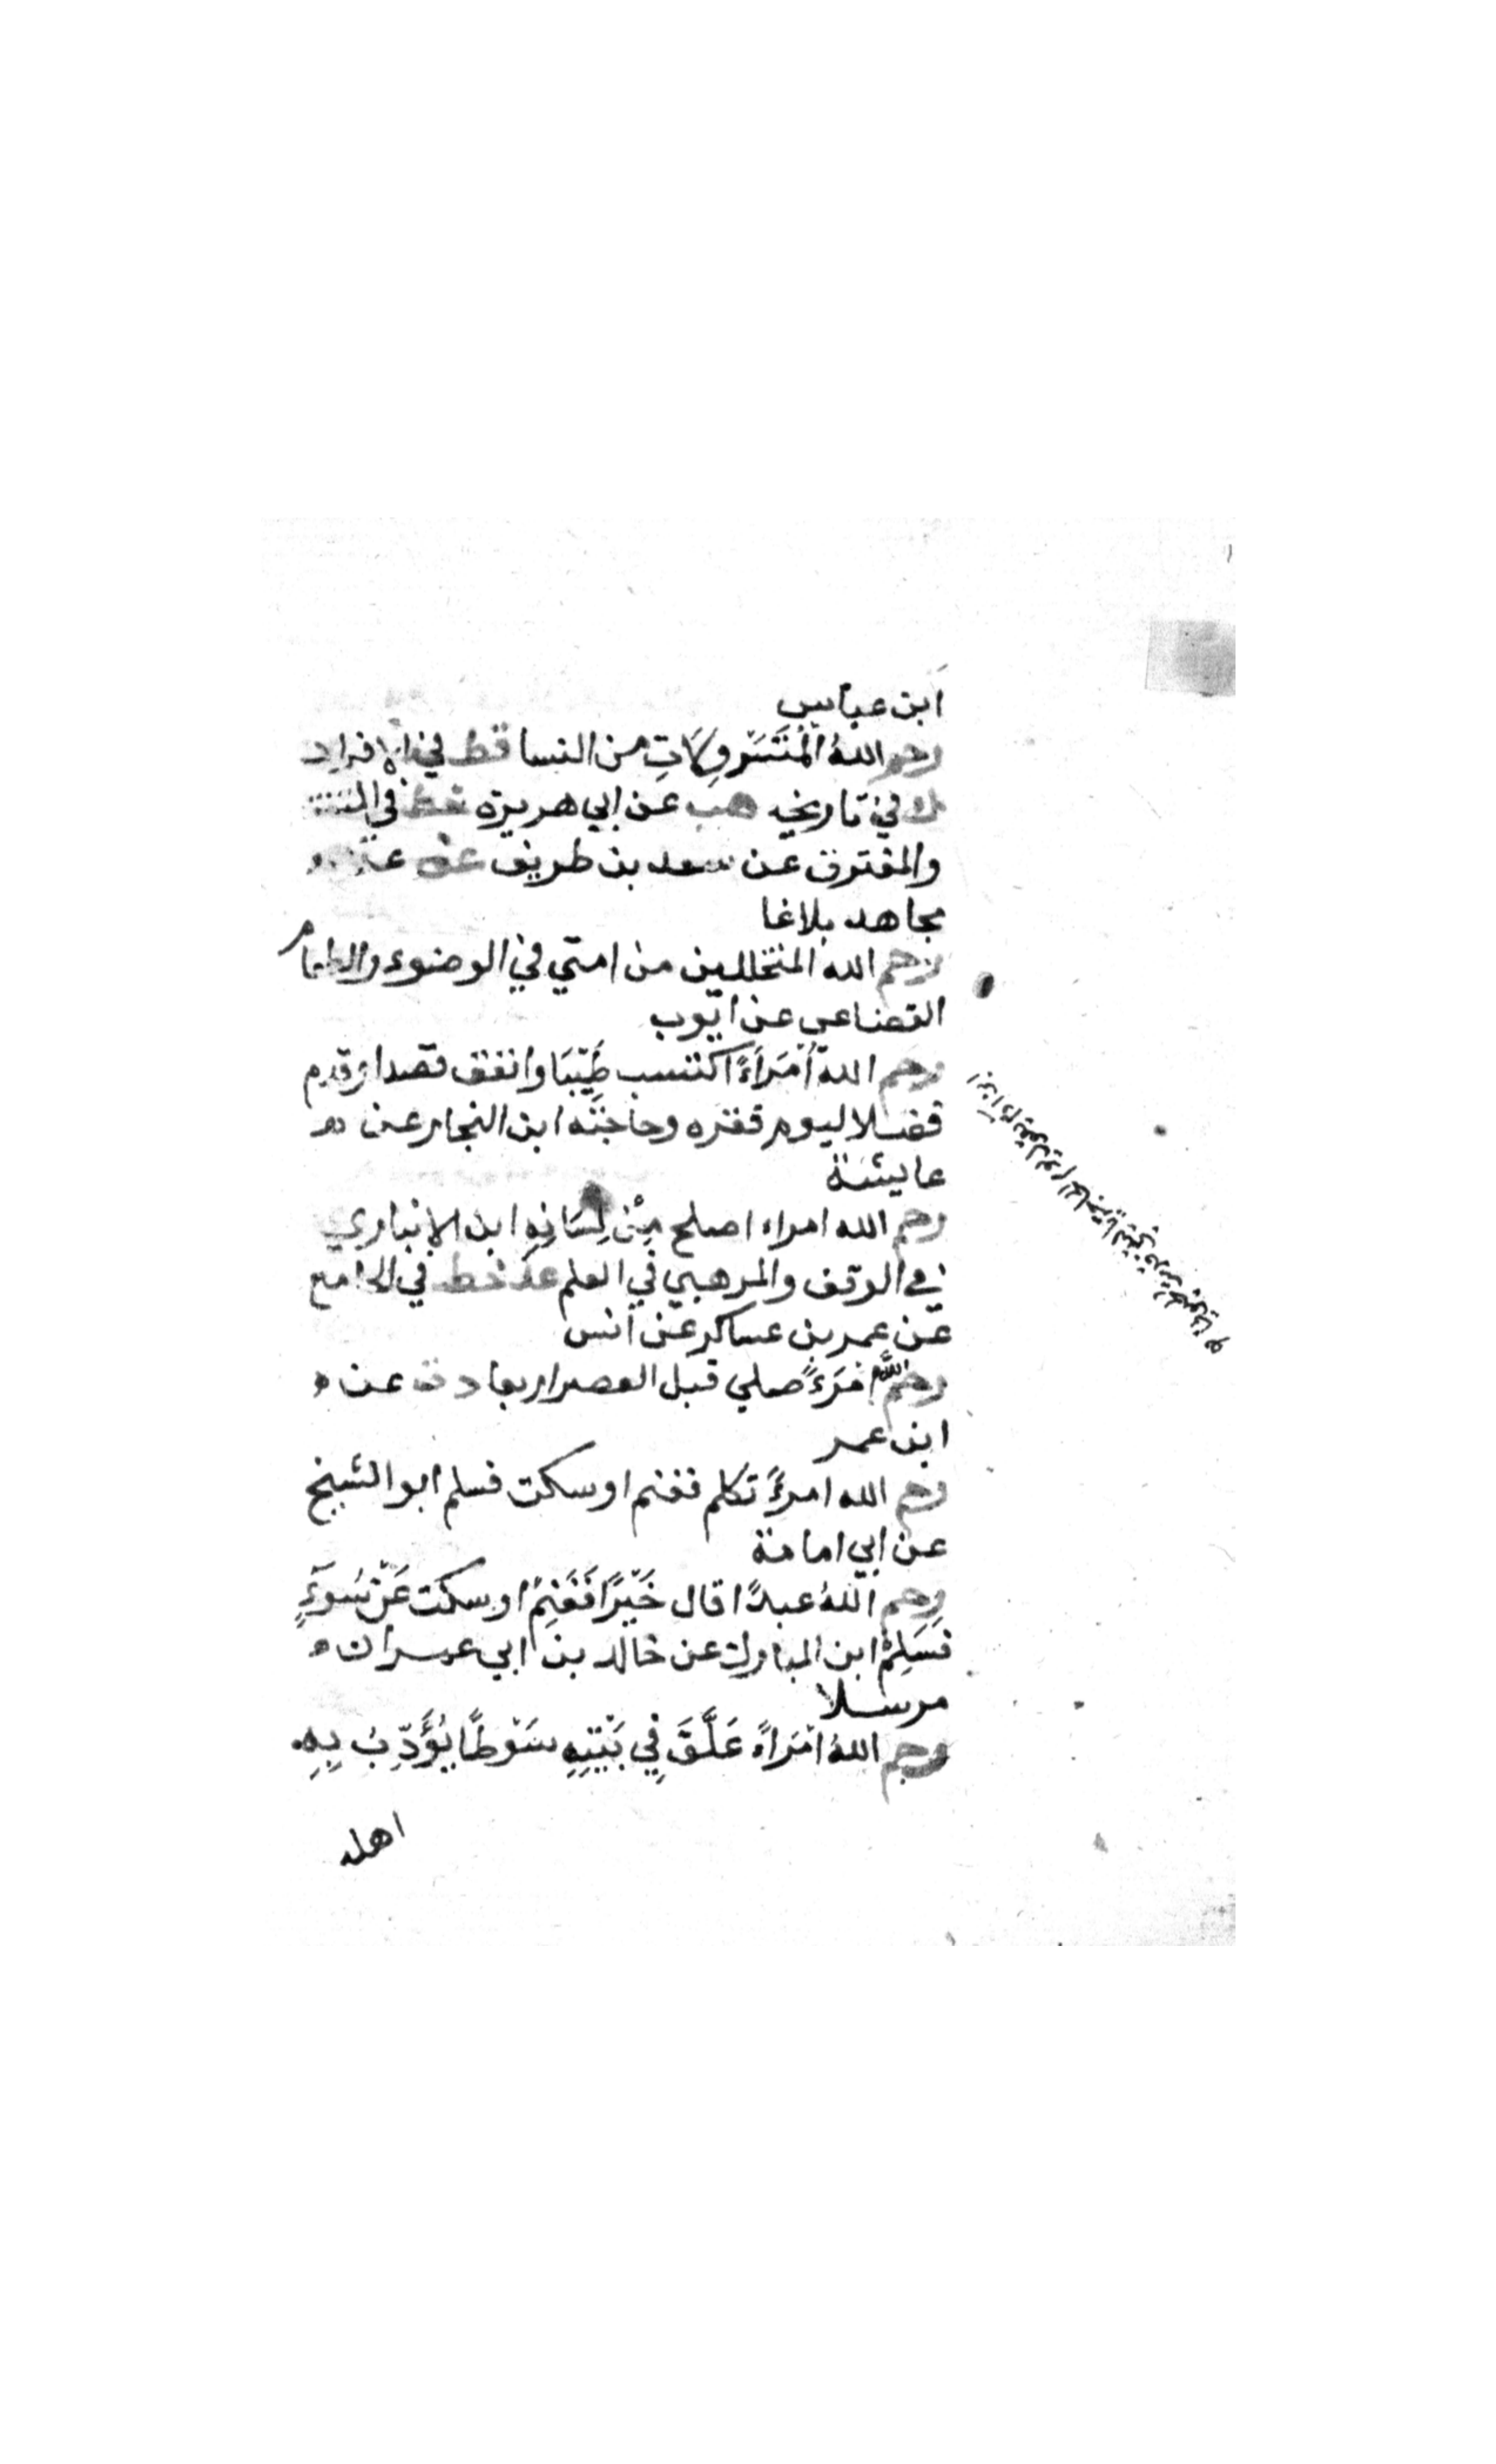 ابن عباس
رحم اللهُ المُتَسَرْوِلَاتِ من النسا قط في الافراد
ك في تاريخه هب عن ابي هريرة خط في المتفق
والمفترق عن سعد بن طريف عق عن
مجاهد بلاغا
رحم الله المتخللين من امتي في الوضوء والطعام
القضاعي عن ايوب
رحم الله اْمَرَاءً اكتسب طَيِّبًا وانفق قصدا وقدم
فضلا ليوم فقره وحاجته ابن النجار عن
عايشة
رحم الله امراء اصلح مِنْ لِسَانِهِ ابن الانباري
في الوقف والمرهبي في العلم عد خط في الجامع
عن عمر بن عساكر عن انس
رحم اللَّه امَرَءً صلي قبل العصر اربعا د ت عن
ابن عمر
رحم الله امرءً تكلم فغنم او سكت فسلم ابو الشيخ
عن ابي امامة
رحم اللهُ عبدًا قال خَيْرًا فَغَنِمَ او سكت عَنْ سُوَءٍ
فَسَلِمَ ابن المبارك عن خالد بن ابي عمران
مرسلا
رحم اللهُ امْرَاءً عَلَّقَ فِي بَيْتِهِ سَوْطًا يُؤَدِّبُ بِهِ
اهله